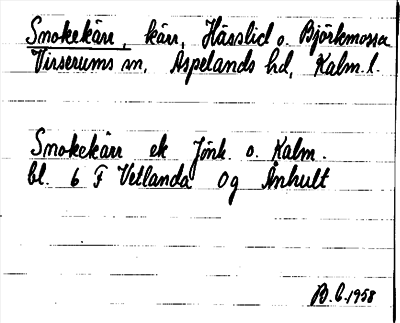 Snokekärr, kärr, Hässlid o. Björkmossa
Virserums sn, Aspelands hd, Kalm. l.
Snokekärr ek Jönk. o. Kalm.
bl. 6 F Vetlanda og Ånhult
B.C. 1958